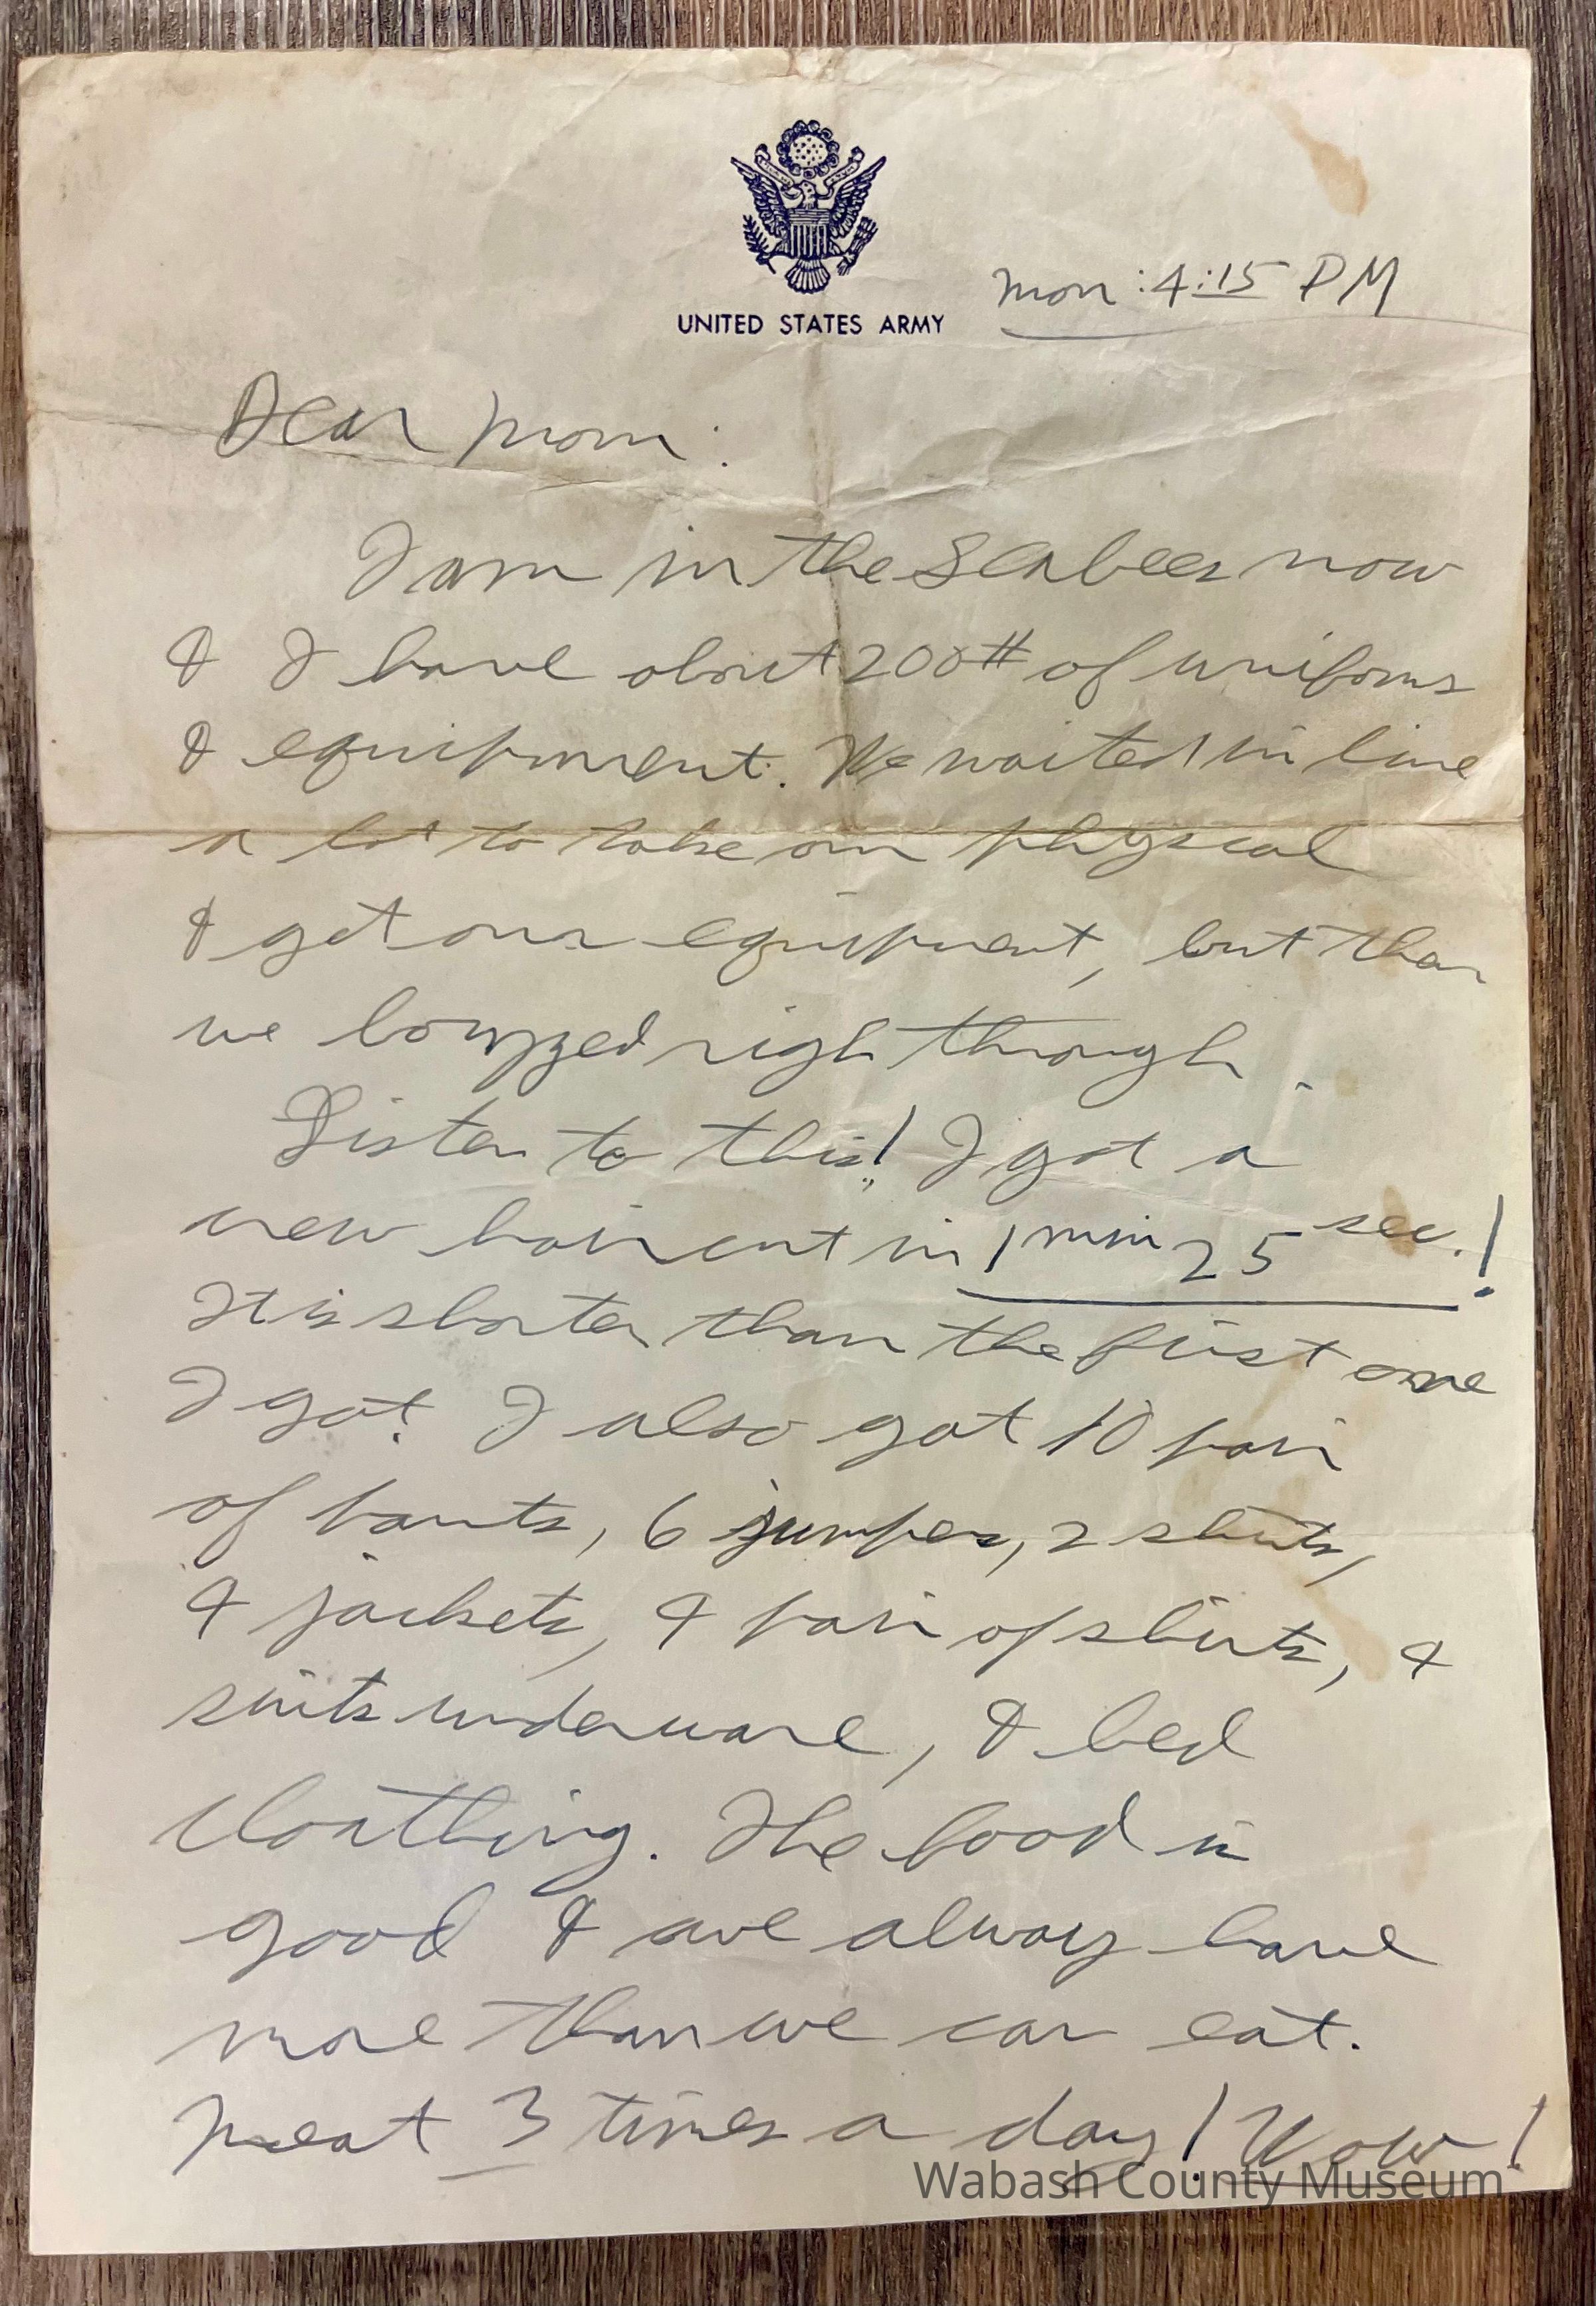 UNITED STATES ARMY
Mon: 4:15 PM
Dear Mom:
I am in the Seabees now
& I have about 200# of uniforms
& equipment. We waited in line
a lot to take our physical
& get our equipment, but then
we bowzzed right through.
Listen to this! I got a
new haircut in 1 min 25 sec.!
It is shorter than the first one
I got! I also got 10 pair
of pants, 6 jumpers, 2 shirts,
& jackets, & pair of shirts, &
suits underware, & bed
cloathing. The food is
good & we always have
more than we can eat.
Meat 3 times a day! Wow!
Wabash County Museum